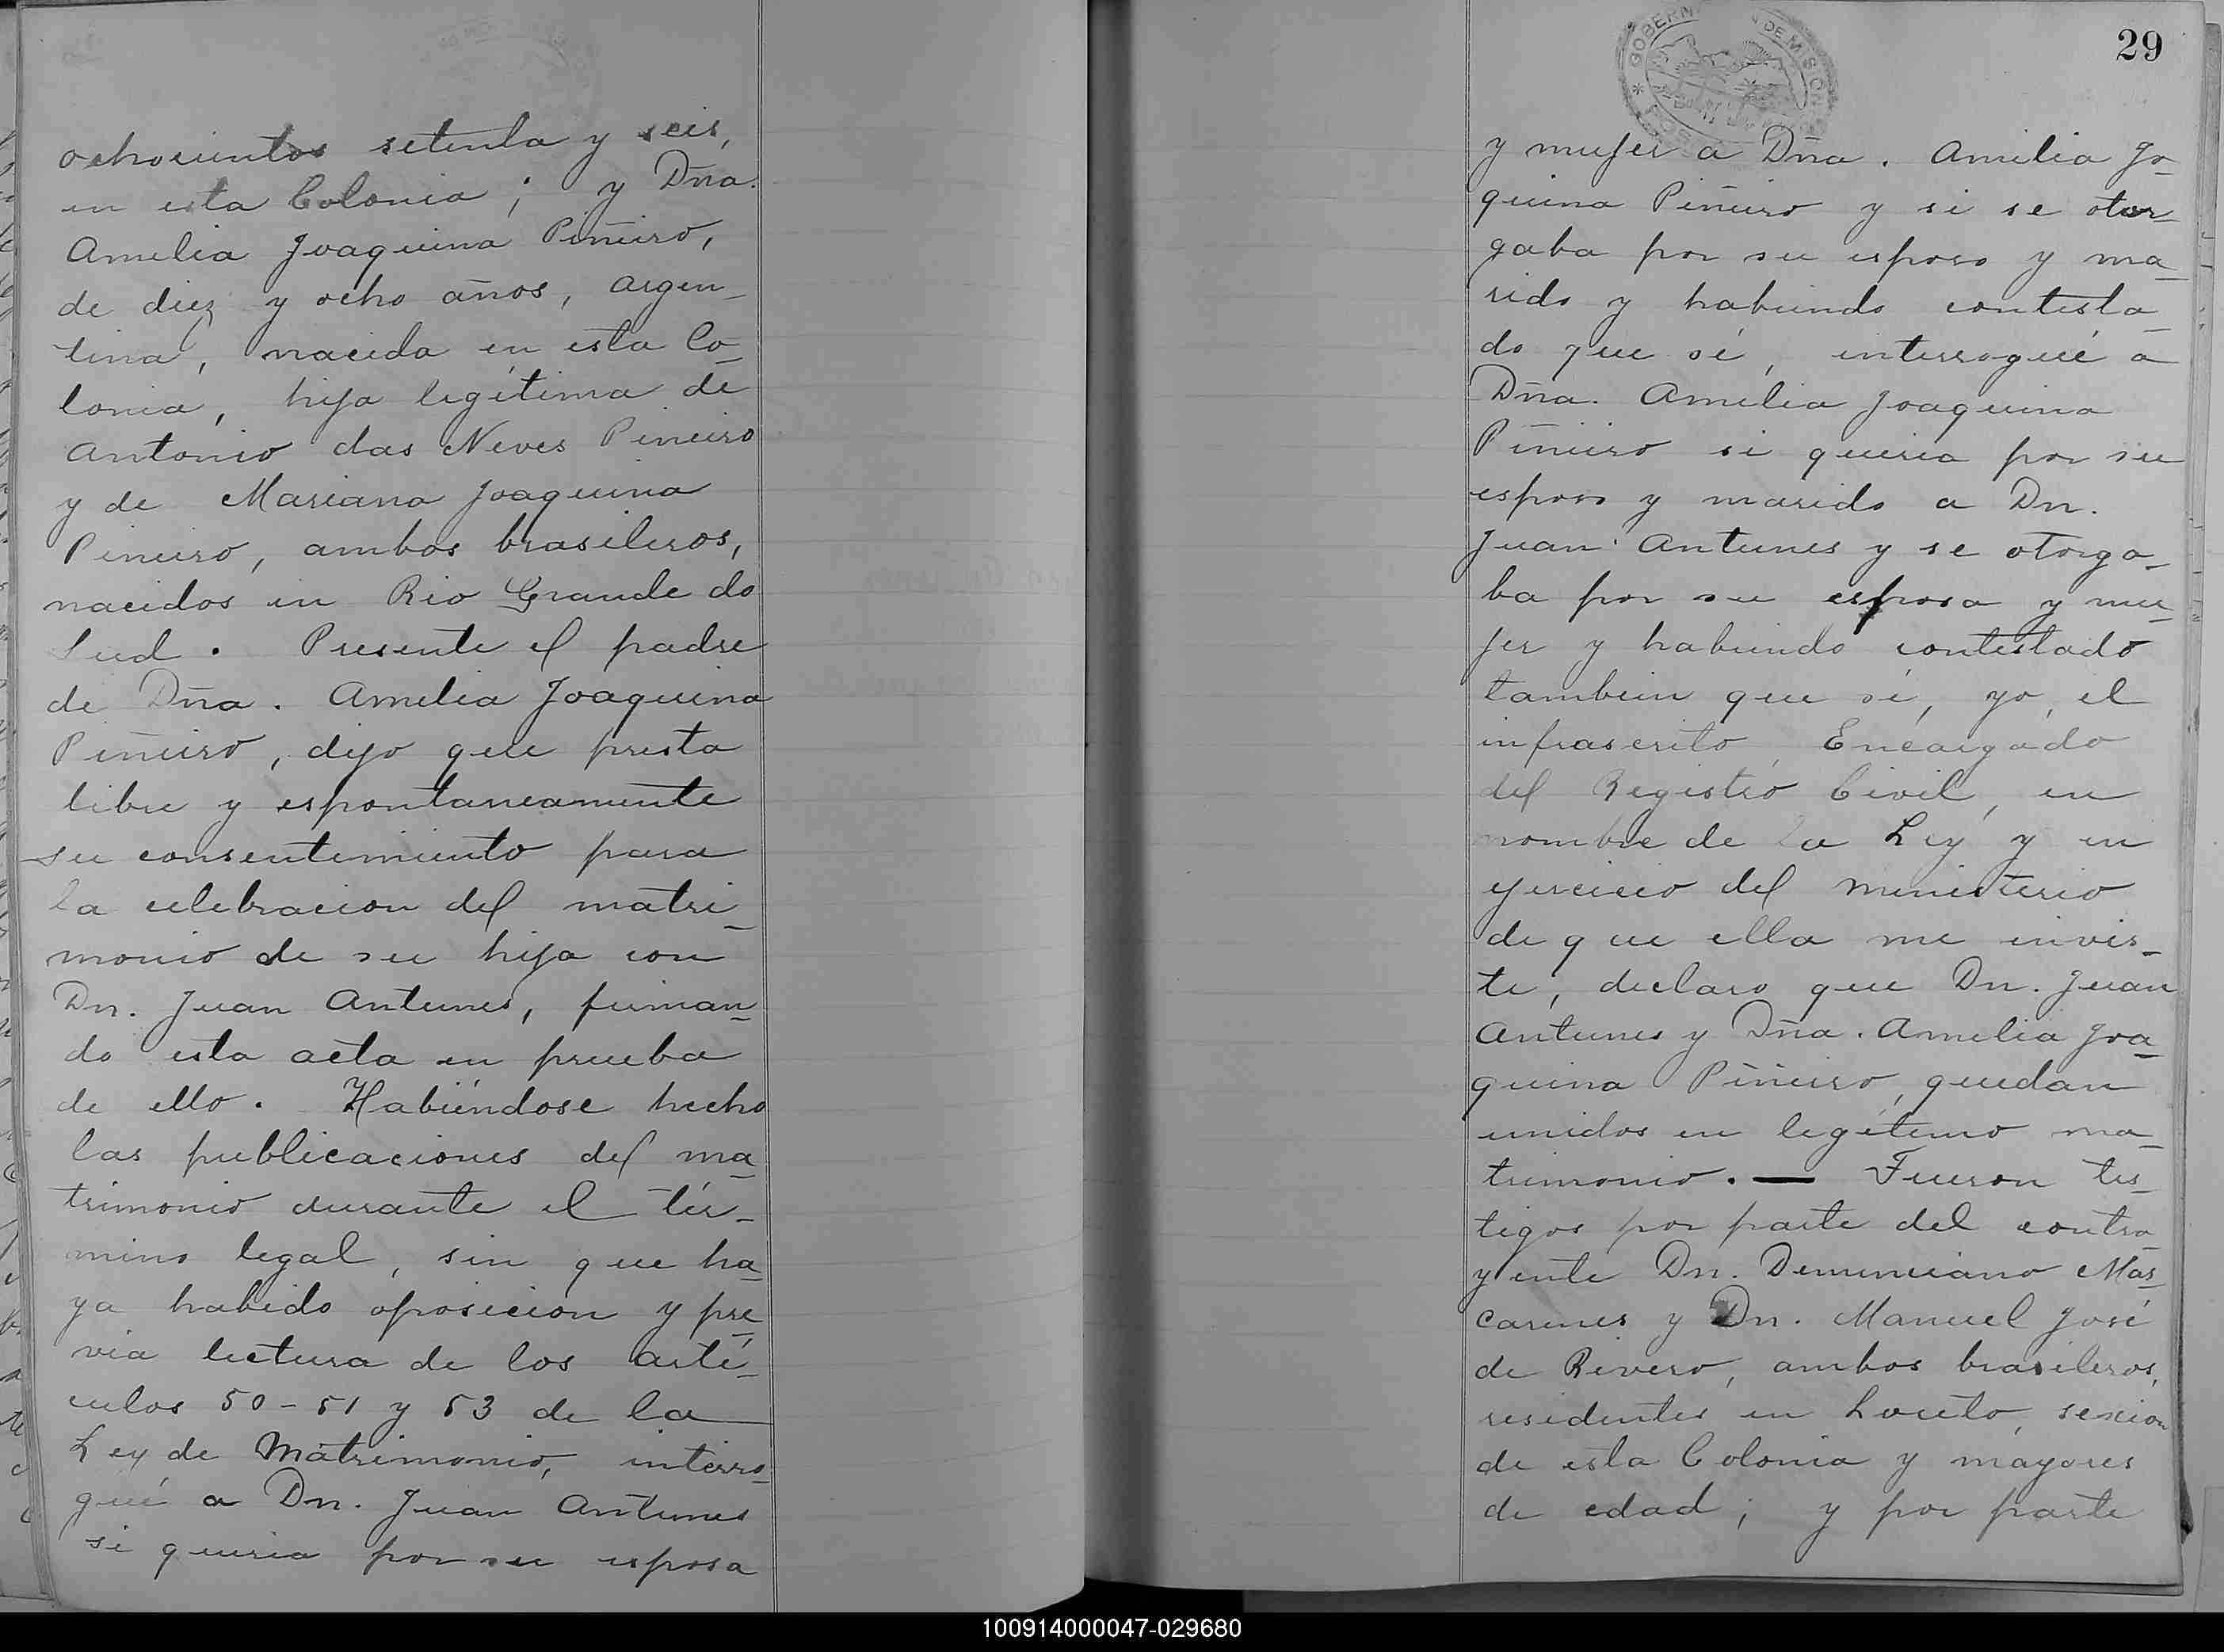 ochocientos setenta y seis,
en esta Colonia; y Dña.
Amelia Joaquina Piñeiro,
de diez y ocho años, argen-
tina, nacida en esta Co-
lonia, hija legítima de
Antonio das Neves Pineiro
y de Mariana Joaquina
Pineiro, ambos brasileros,
nacidos en Rio Grande do
Sud. Presente el padre
de Dña. Amelia Joaquina
Piñeiro, dijo que presta
libre y espontaneamente
su consentimiento para
la celebracion del matri-
monio de su hija con
Dn. Juan Antunes, firman-
do esta acta en prueba
de ello. Habiéndose hecho
las publicaciones del ma-
trimonio durante el tér-
mino legal, sin que ha-
ya habido oposicion y pré-
via lectura de los artí-
culos 50-51 y 53 de la
Ley de Matrimonio, interro-
gué a Dn. Juan Antunes
si queria por su esposa
29
GOBERN DE MISION
y mujer a Dña. Amelia Jo-
quina Piñeiro y si se otor-
gaba por su esposo y ma-
rido y habiendo contesta-
do que sí, interrogué a
Dña. Amelia Joaquina
Piñeiro si queria por su
esposo y marido a Dn.
Juan Antunes y se otorga-
ba por su esposa y mu-
jer y habiendo contestado
tambien que sí, yo, el
infrascrito, Encargado
del Registro Civil, en
nombre de la Ley y en
ejercicio del ministerio
de que ella me invis-
te, declaro que Dn. Juan
Antunes y Dña. Amelia Joa-
quina Piñeiro, quedan
unidos en legítimo ma-
trimonio. — Fueron tes-
tigos por parte del contra-
yente Dn. Mas-
carenes y Dn. Manuel José
de Rivero, ambos brasileros,
residentes en Loreto, sexion
de esta Colonia y mayores
de edad; y por parte
100914000047-029680